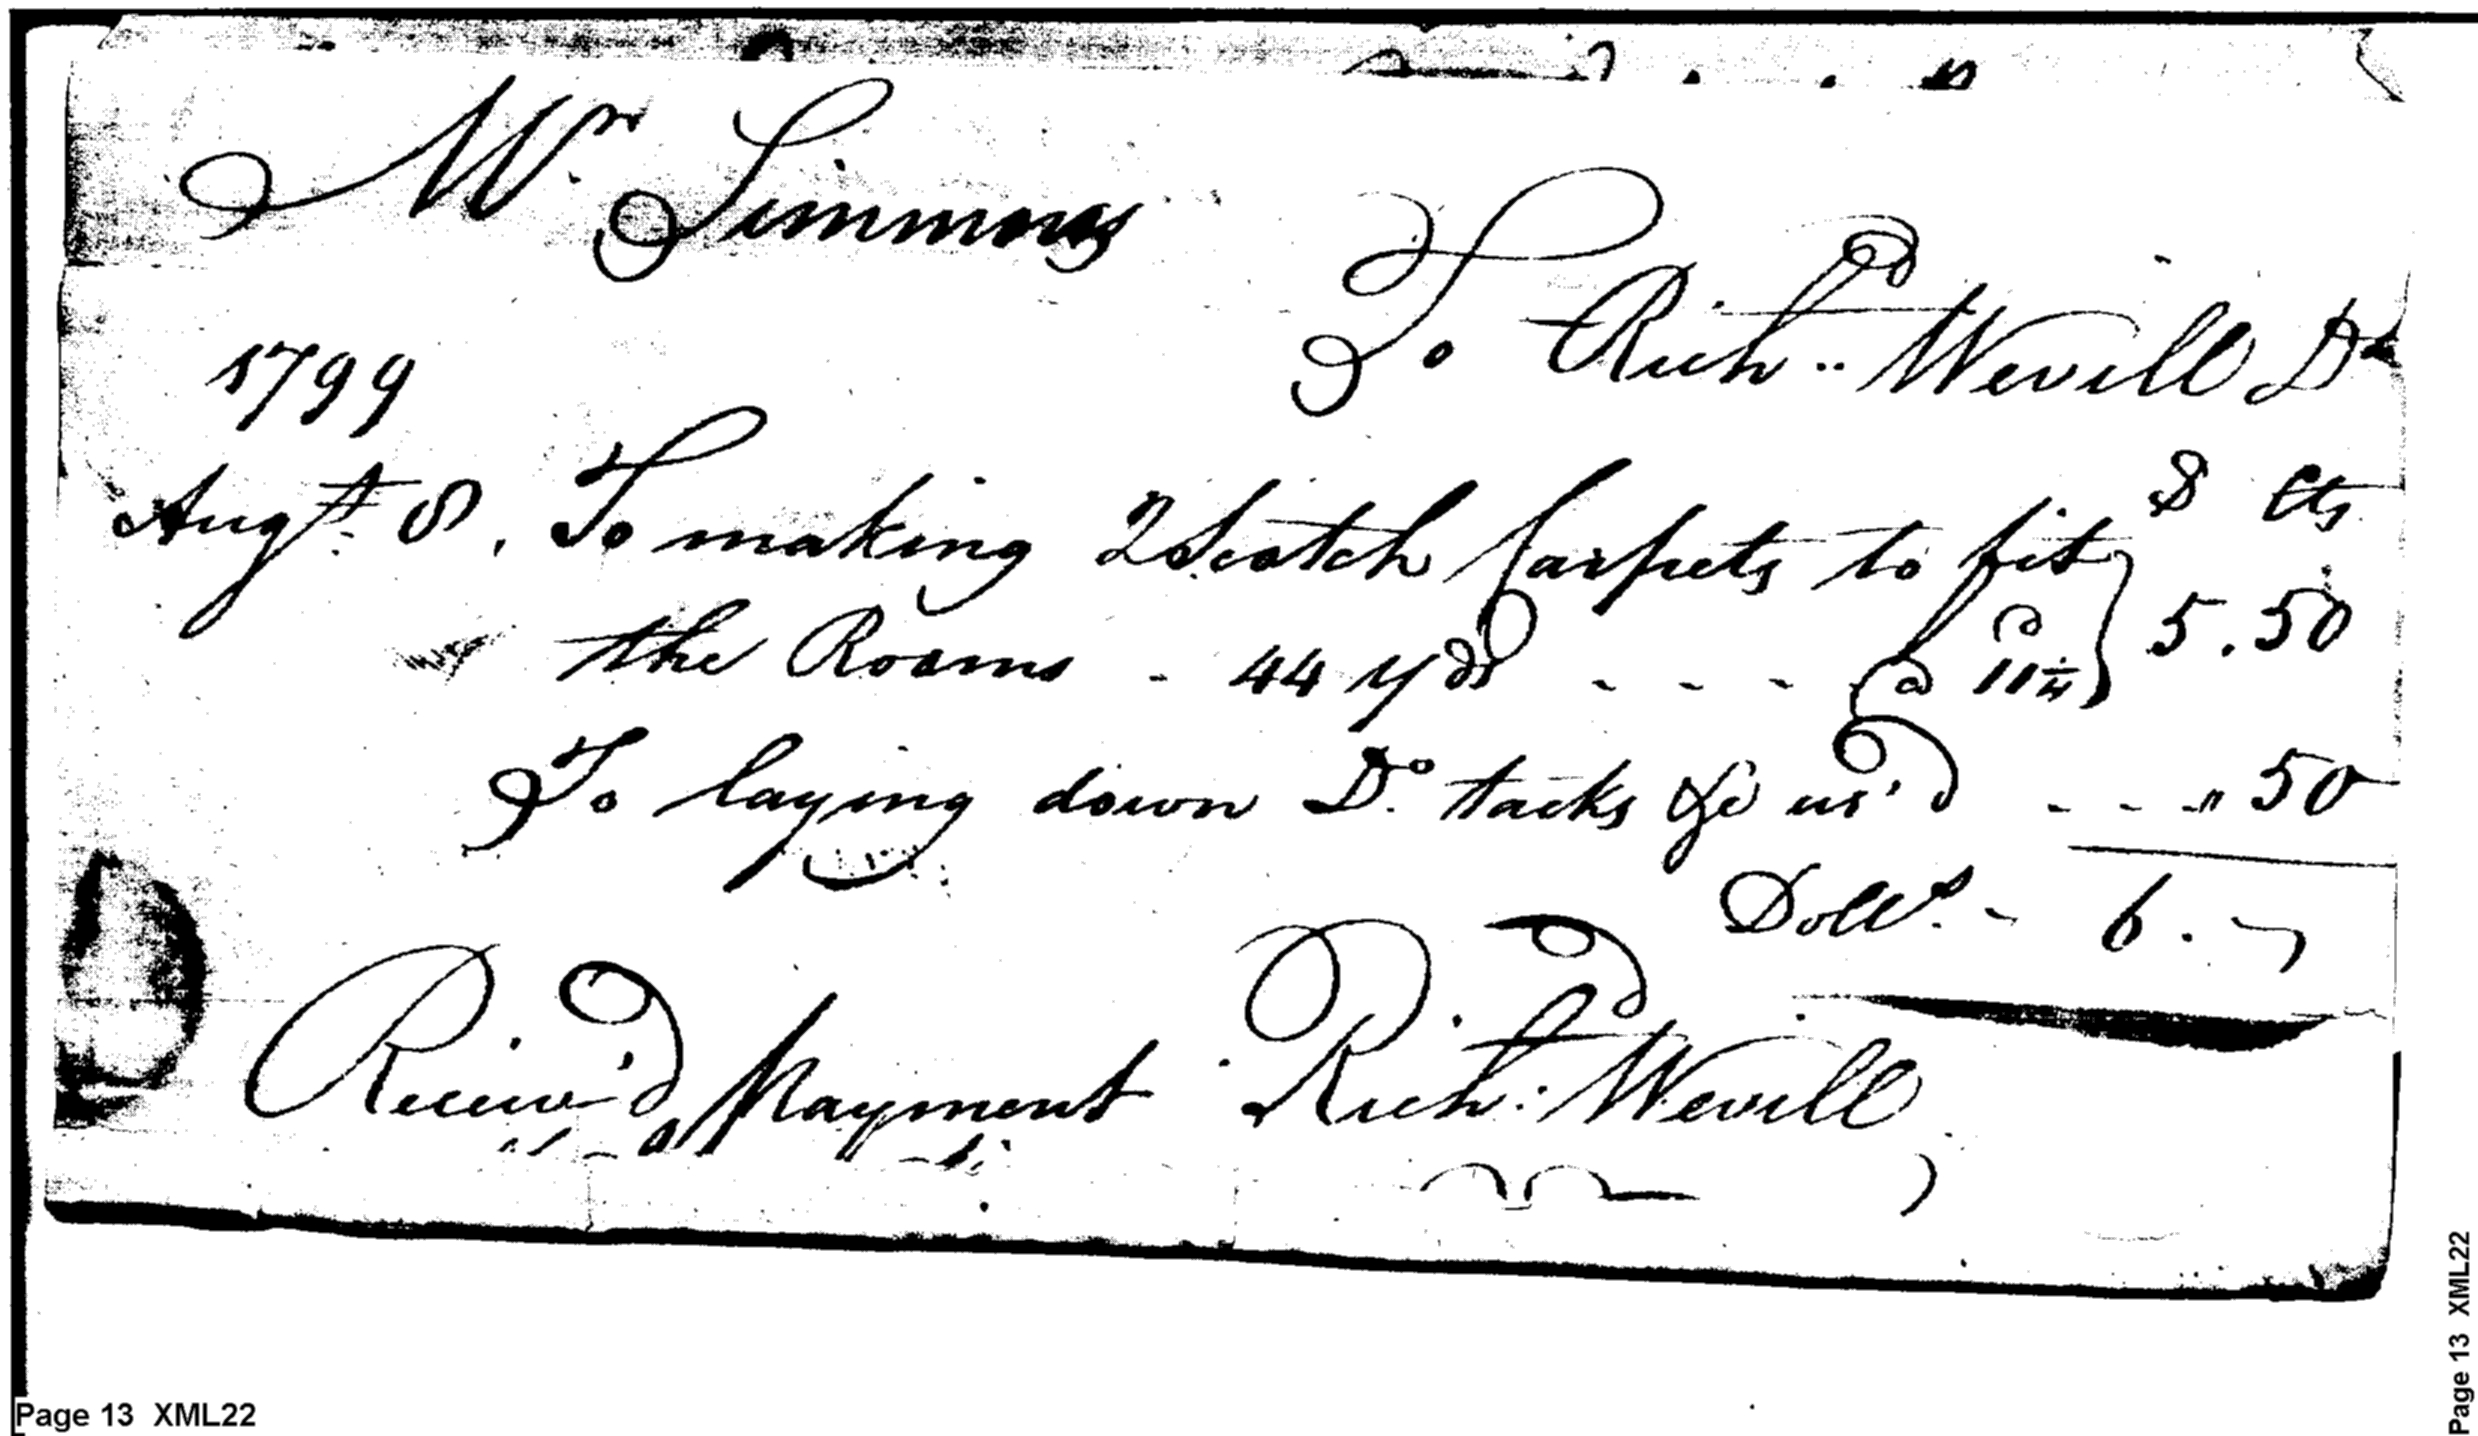 Mr. Simmons
To Richd.. Wevill Dr
1799
D Cts
Augt. 8, To making 2 Scotch Carpets to fit
the Rooms - 44 yds - - - @ 11d 1/4 } 5.50
To laying down Do. tacks &c us'd - - - " 50
Dolls. - 6. -
Receiv'd Payment Richd: Wevill
Page 13 XML22
Page 13 XML22